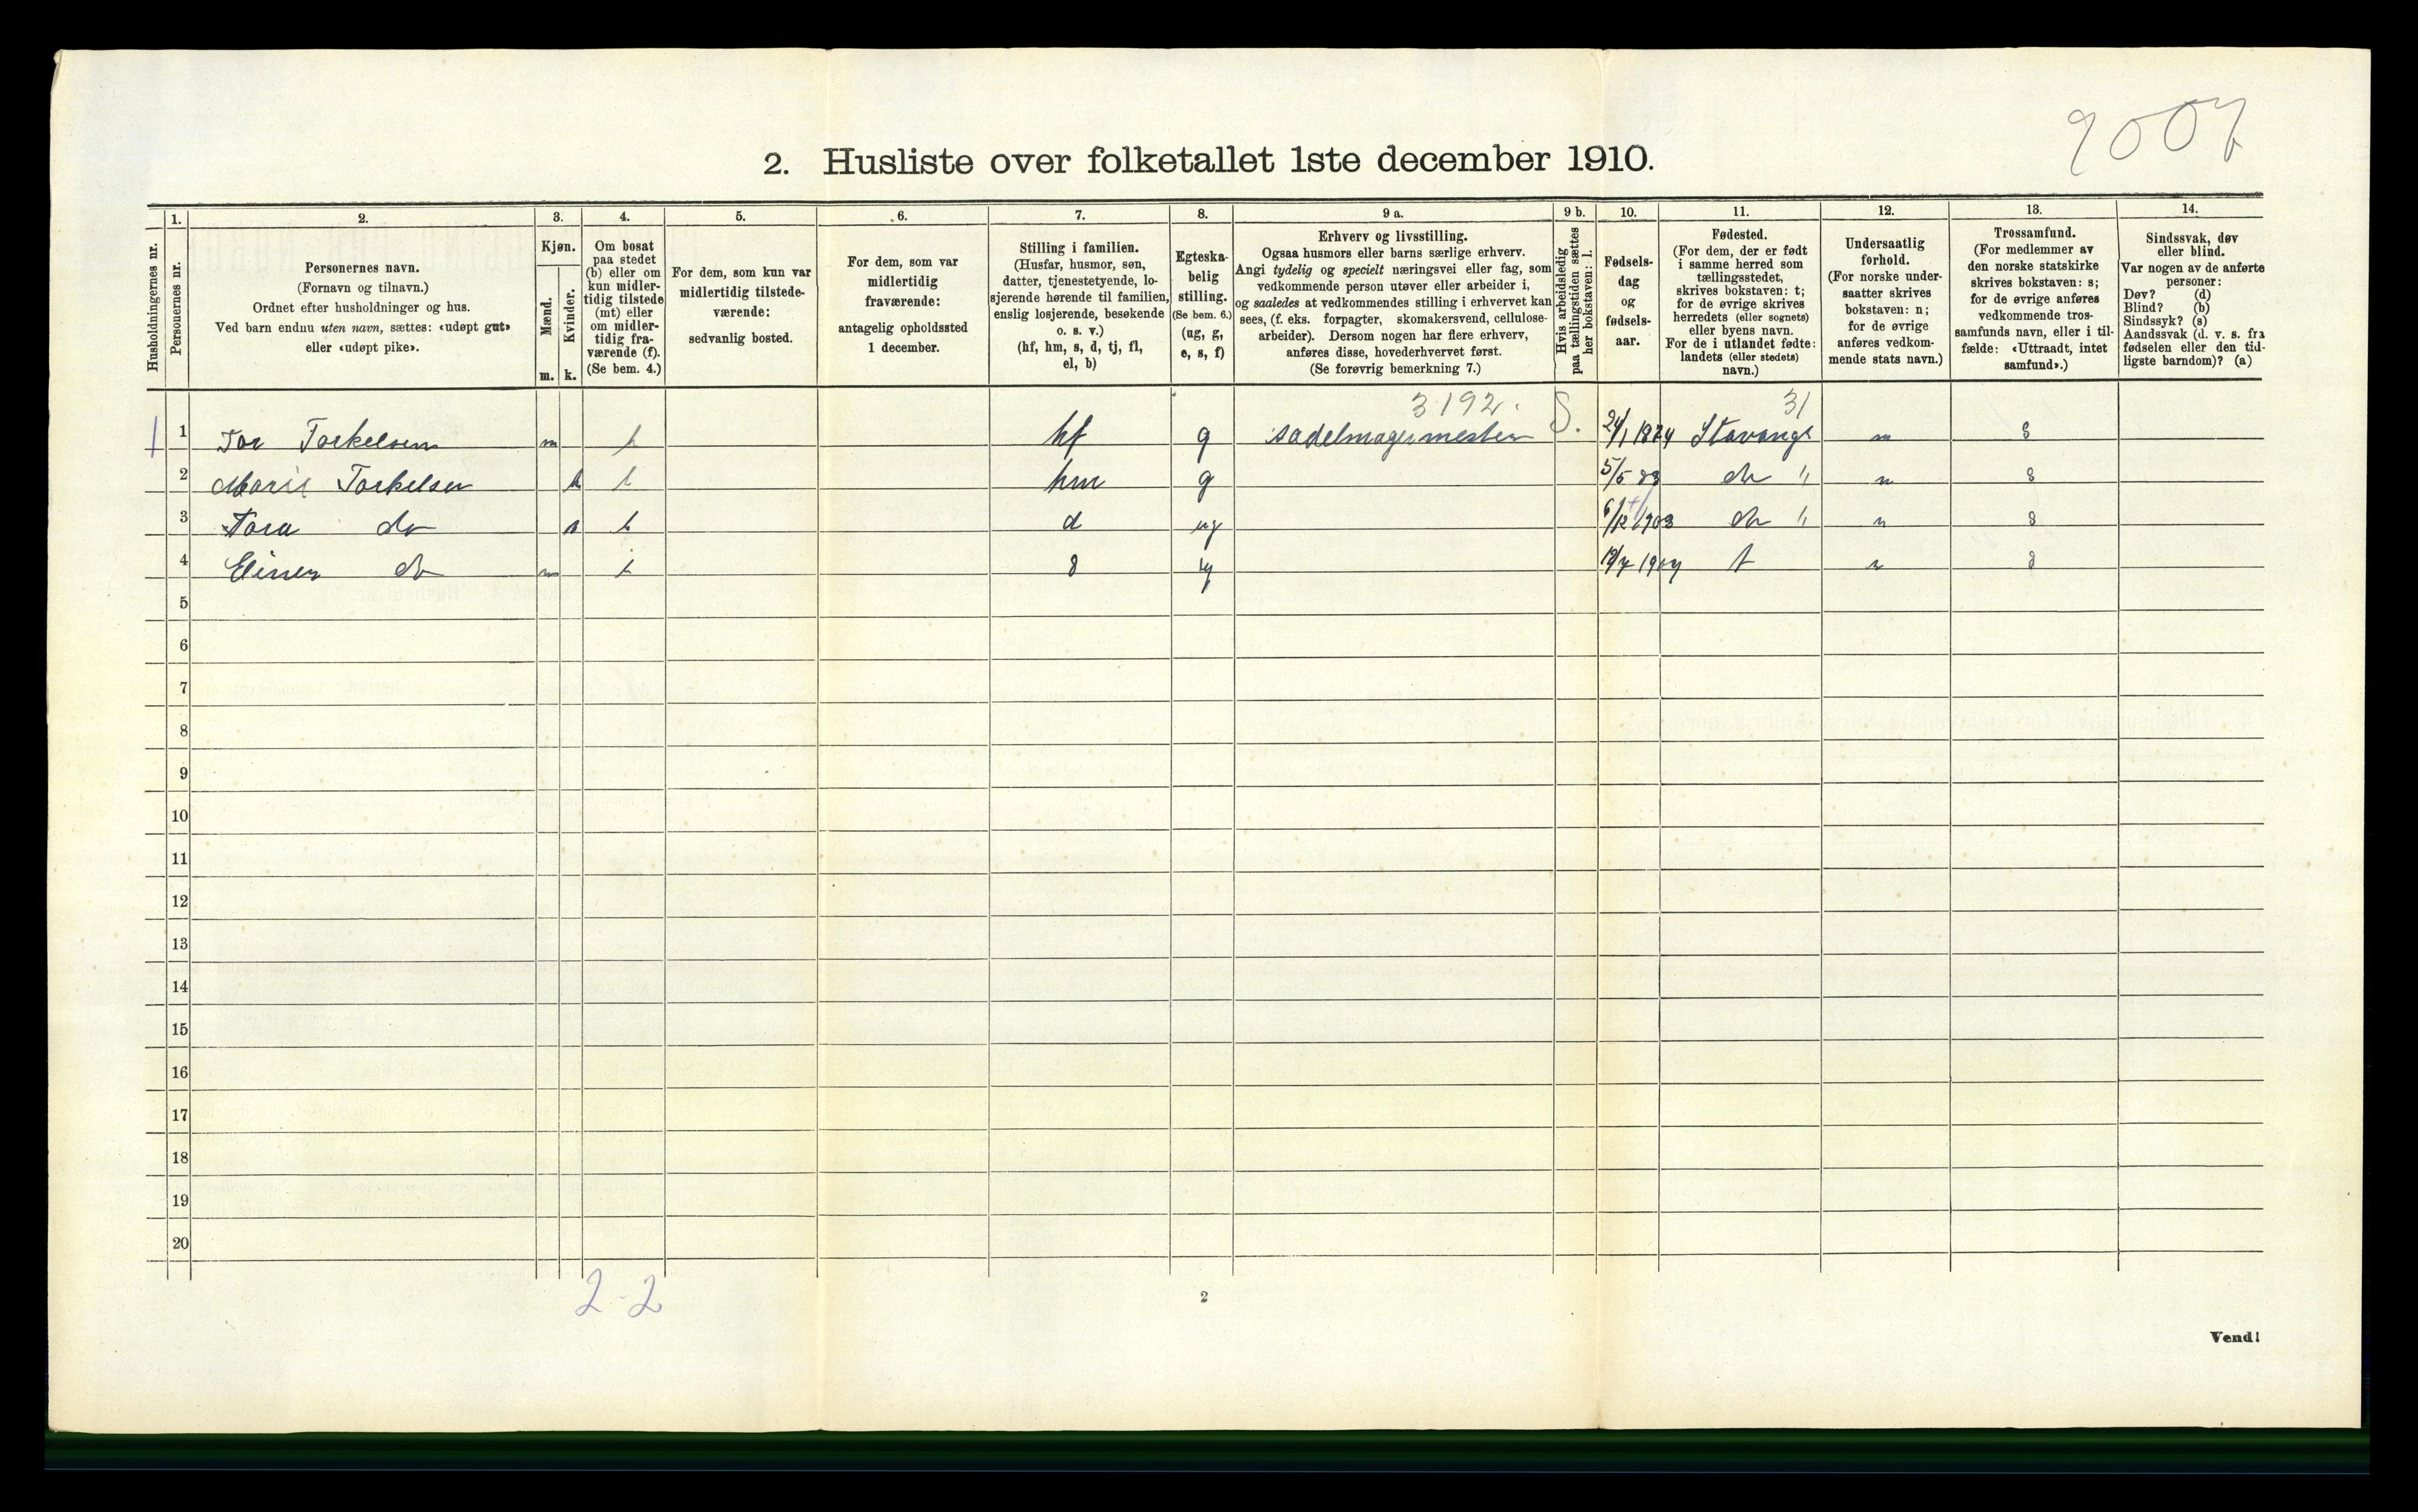 9007
2. Husliste over folketallet 1ste december 1910.
Husholdningernes nr.
1.
Personernes nr.
2.
Personernes navn.
(Fornavn og tilnavn.)
Ordnet efter husholdninger og hus.
Ved barn endnu uten navn, sættes: «udøpt gut»
eller «udøpt pike».
3.
Kjøn.
Mænd.
Kvinder.
m. k.
4.
Om bosat
paa stedet
(b) eller om
kun midler-
tidig tilstede
(mt) eller
om midler-
tidig fra-
værende (f).
(Se bem. 4.)
5.
For dem, som kun var
midlertidig tilstede-
værende:
sedvanlig bosted.
6.
For dem, som var
midlertidig
fraværende:
antagelig opholdssted
1 december.
7.
Stilling i familien.
(Husfar, husmor, søn,
datter, tjenestetyende, lo-
sjerende hørende til familien,
enslig losjerende, besøkende
o. s. v.)
(hf, hm, s, d, tj, fl,
el, b)
8.
Egteska-
belig
stilling.
(Se bem. 6.)
(ug, g,
e, s, f)
9 a.
Erhverv og livsstilling.
Ogsaa husmors eller barns særlige erhverv.
Angi tydelig og specielt næringsvei eller fag, som
vedkommende person utøver eller arbeider i,
og saaledes at vedkommendes stilling i erhvervet kan
sees, (f. eks. forpagter, skomakersvend, cellulose-
arbeider). Dersom nogen har flere erhverv,
anføres disse, hovederhvervet først.
(Se forøvrig bemerkning 7.)
9 b.
Hvis arbeidsledig
paa tællingstiden sættes
her bokstaven: l.
10.
Fødsels-
dag
og
fødsels-
aar.
11.
Fødested.
(For dem, der er født
i samme herred som
tællingsstedet,
skrives bokstaven: t;
for de øvrige skrives
herredets (eller sognets)
eller byens navn.
For de i utlandet fødte:
landets (eller stedets)
navn.)
12.
Undersaatlig
forhold.
(For norske under-
saatter skrives
bokstaven: n;
for de øvrige
anføres vedkom-
mende stats navn.)
13.
Trossamfund.
(For medlemmer av
den norske statskirke
skrives bokstaven: s;
for de øvrige anføres
vedkommende tros-
samfunds navn, eller i til-
fælde: «Uttraadt, intet
samfund».)
14.
Sindssvak, døv
eller blind.
Var nogen av de anførte
personer:
Døv? (d)
Blind? (b)
Sindssyk? (s)
Aandssvak (d. v. s. fra
fødselen eller den tid-
ligste barndom)? (a)
3192. 31
1 1 Tor Torkelsen m b hf g sadelmagermester S. 24/1 1874 Stavanger n s
2 Marie Torkelsen k b hm g 5/5 83 do " n s
3 Tora do k b d ug 6/12 1903 do " n s
4 Einer do m b s ug 1907 t n s
5
6
7
8
9
10
11
12
13
14
15
16
17
18
19
20
2-2
2
Vend!